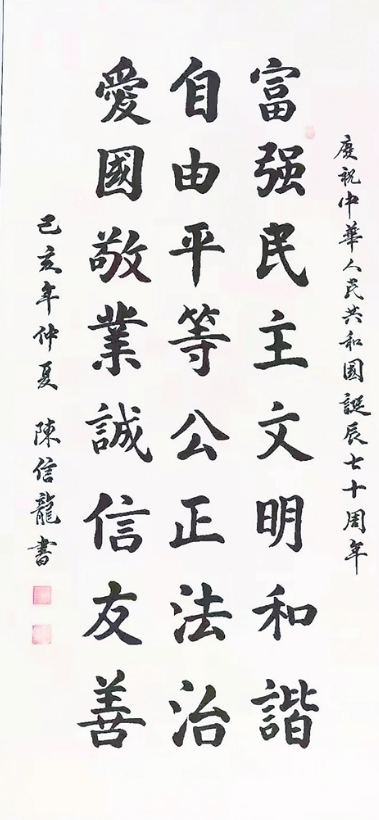 庚祝中華人民共和國誕辰七十周年
富强民主文明和諧
自由平等公正法治
愛國敬業誠信友善
己亥年仲夏 陳信龍書